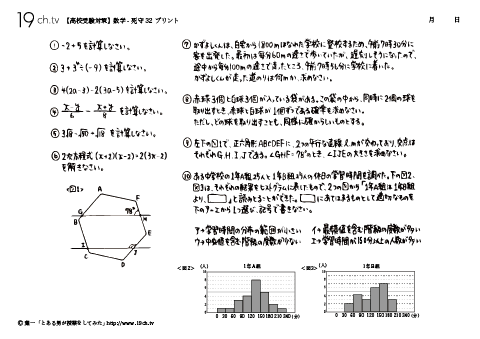 19ch.tv 【高校受験対策】数学-死守32 プリント 月 日
① -2+5を計算しなさい。
② 7+3²÷(-9)を計算しなさい。
③ 4(2a-3)-2(3a-5)を計算しなさい。
④ x-y/6 - x+y/8 を計算しなさい。
⑤ を計算しなさい。
⑥ 2次方程式 (x+2)(x-2)=2(3x-2)
を解きなさい。
<図1>
A
B
G
78°
H
F
I
J
E
C
D
⑦ かずよしくんは、自宅から1800mはなれた学校に登校するため、午前7時30分に
家を出発した。最初は毎分60mの速さで歩いていたが、遅刻しそうになったので、
途中から毎分100mの速さで走ったところ、午前7時51分に学校に着いた。
かずよしくんが走った道のりは何mか、求めなさい。
⑧ 赤球3個と白球3個が入っている袋がある。この袋の中から、同時に2個の球を
取り出すとき、赤球と白球が1個ずつである確率を求めなさい。
ただし、どの球を取り出すことも、同様に確からしいものとする。
⑨ 左下の図1で、正六角形ABCDEFに、2つの平行な直線ℓ,mが交わっており、交点は
それぞれG,H,I,Jである。∠GHF=78°のとき、∠IJEの大きさを求めなさい。
⑩ ある中学校の1年A組25人と1年B組25人の休日の学習時間を調べた。下の図2、
図3は、それぞれの結果をヒストグラムに表したもので、2つの図から「1年A組は1年B組
より、□」と読みとることができた。□にあてはまるものとして適切なものを
下のア~エから1つ選び、記号で書きなさい。
ア→学習時間の分布の範囲が小さい イ→最頻値を含む階級の度数が多い
ウ→中央値を含む階級の度数が少ない エ→学習時間が150分以上の人数が多い
<図2> (人) 1年A組
10
8
6
4
2
0
0 30 60 90 120 150 180 210 240 (分)
<図3> (人) 1年B組
10
8
6
4
2
0
0 30 60 90 120 150 180 210 240 (分)
©葉一「とある男が授業をしてみた」http://www.19ch.tv